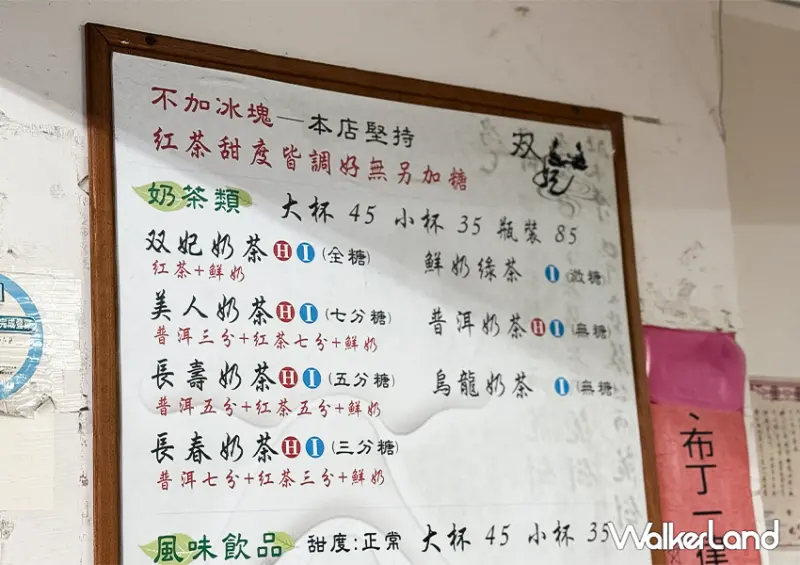 不加冰塊—本店堅持
紅茶甜度皆調好無另加糖
双妃
奶茶類 大杯 45 小杯 35 瓶裝 85
双妃奶茶 H I (全糖)
紅茶+鮮奶
美人奶茶 H I (七分糖)
普洱三分+紅茶七分+鮮奶
長壽奶茶 H I (五分糖)
普洱五分+紅茶五分+鮮奶
長春奶茶 H I (三分糖)
普洱七分+紅茶三分+鮮奶
鮮奶綠茶 I (微糖)
普洱奶茶 H I (無糖)
烏龍奶茶 I (無糖)
風味飲品 甜度:正常 大杯 45 小杯 35
布丁一律
WalkerLand